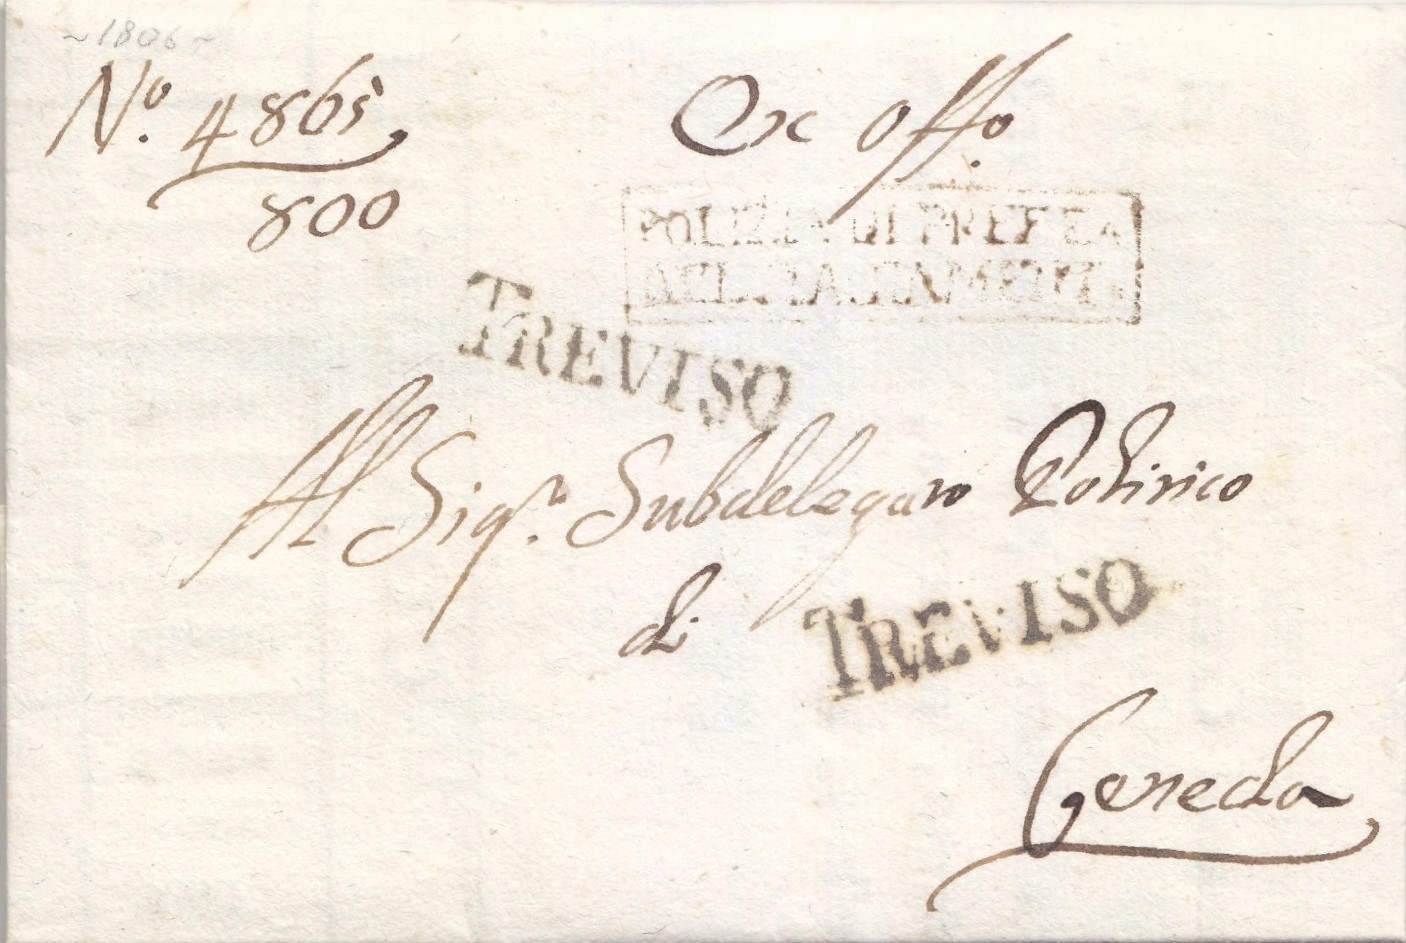 ~1806~
Nº. 4865
800
Ex offo
POLIZIA DI PREF
DEL TAGLIAMENT
TREVISO
Al Sigr. Subdelegato Politico
di
TREVISO
Ceneda